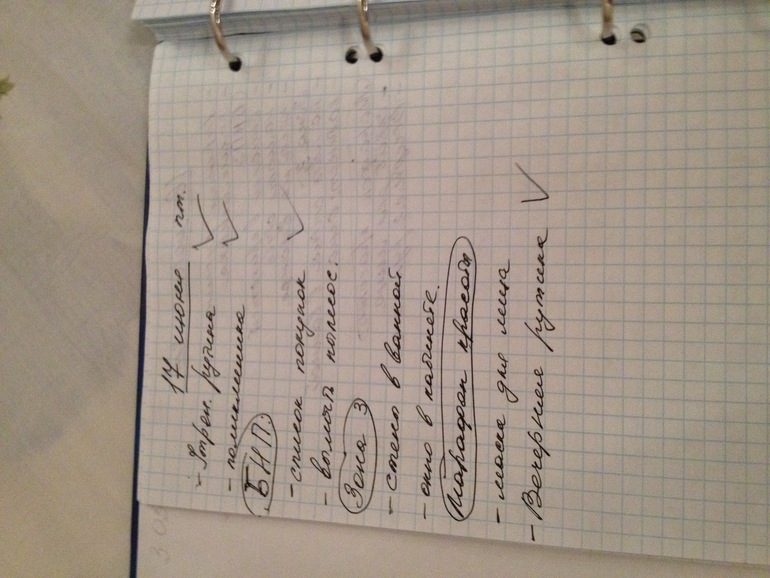 17 июня пт.
- Утрен. рутина ✓
- поликлиника ✓
БНП.
- список покупок ✓
- вымыть пылесос.
Зона 3
- стена в ванной
- окно в кабинете.
Марафон красоты
- маска для лица
- Вечерняя рутина ✓